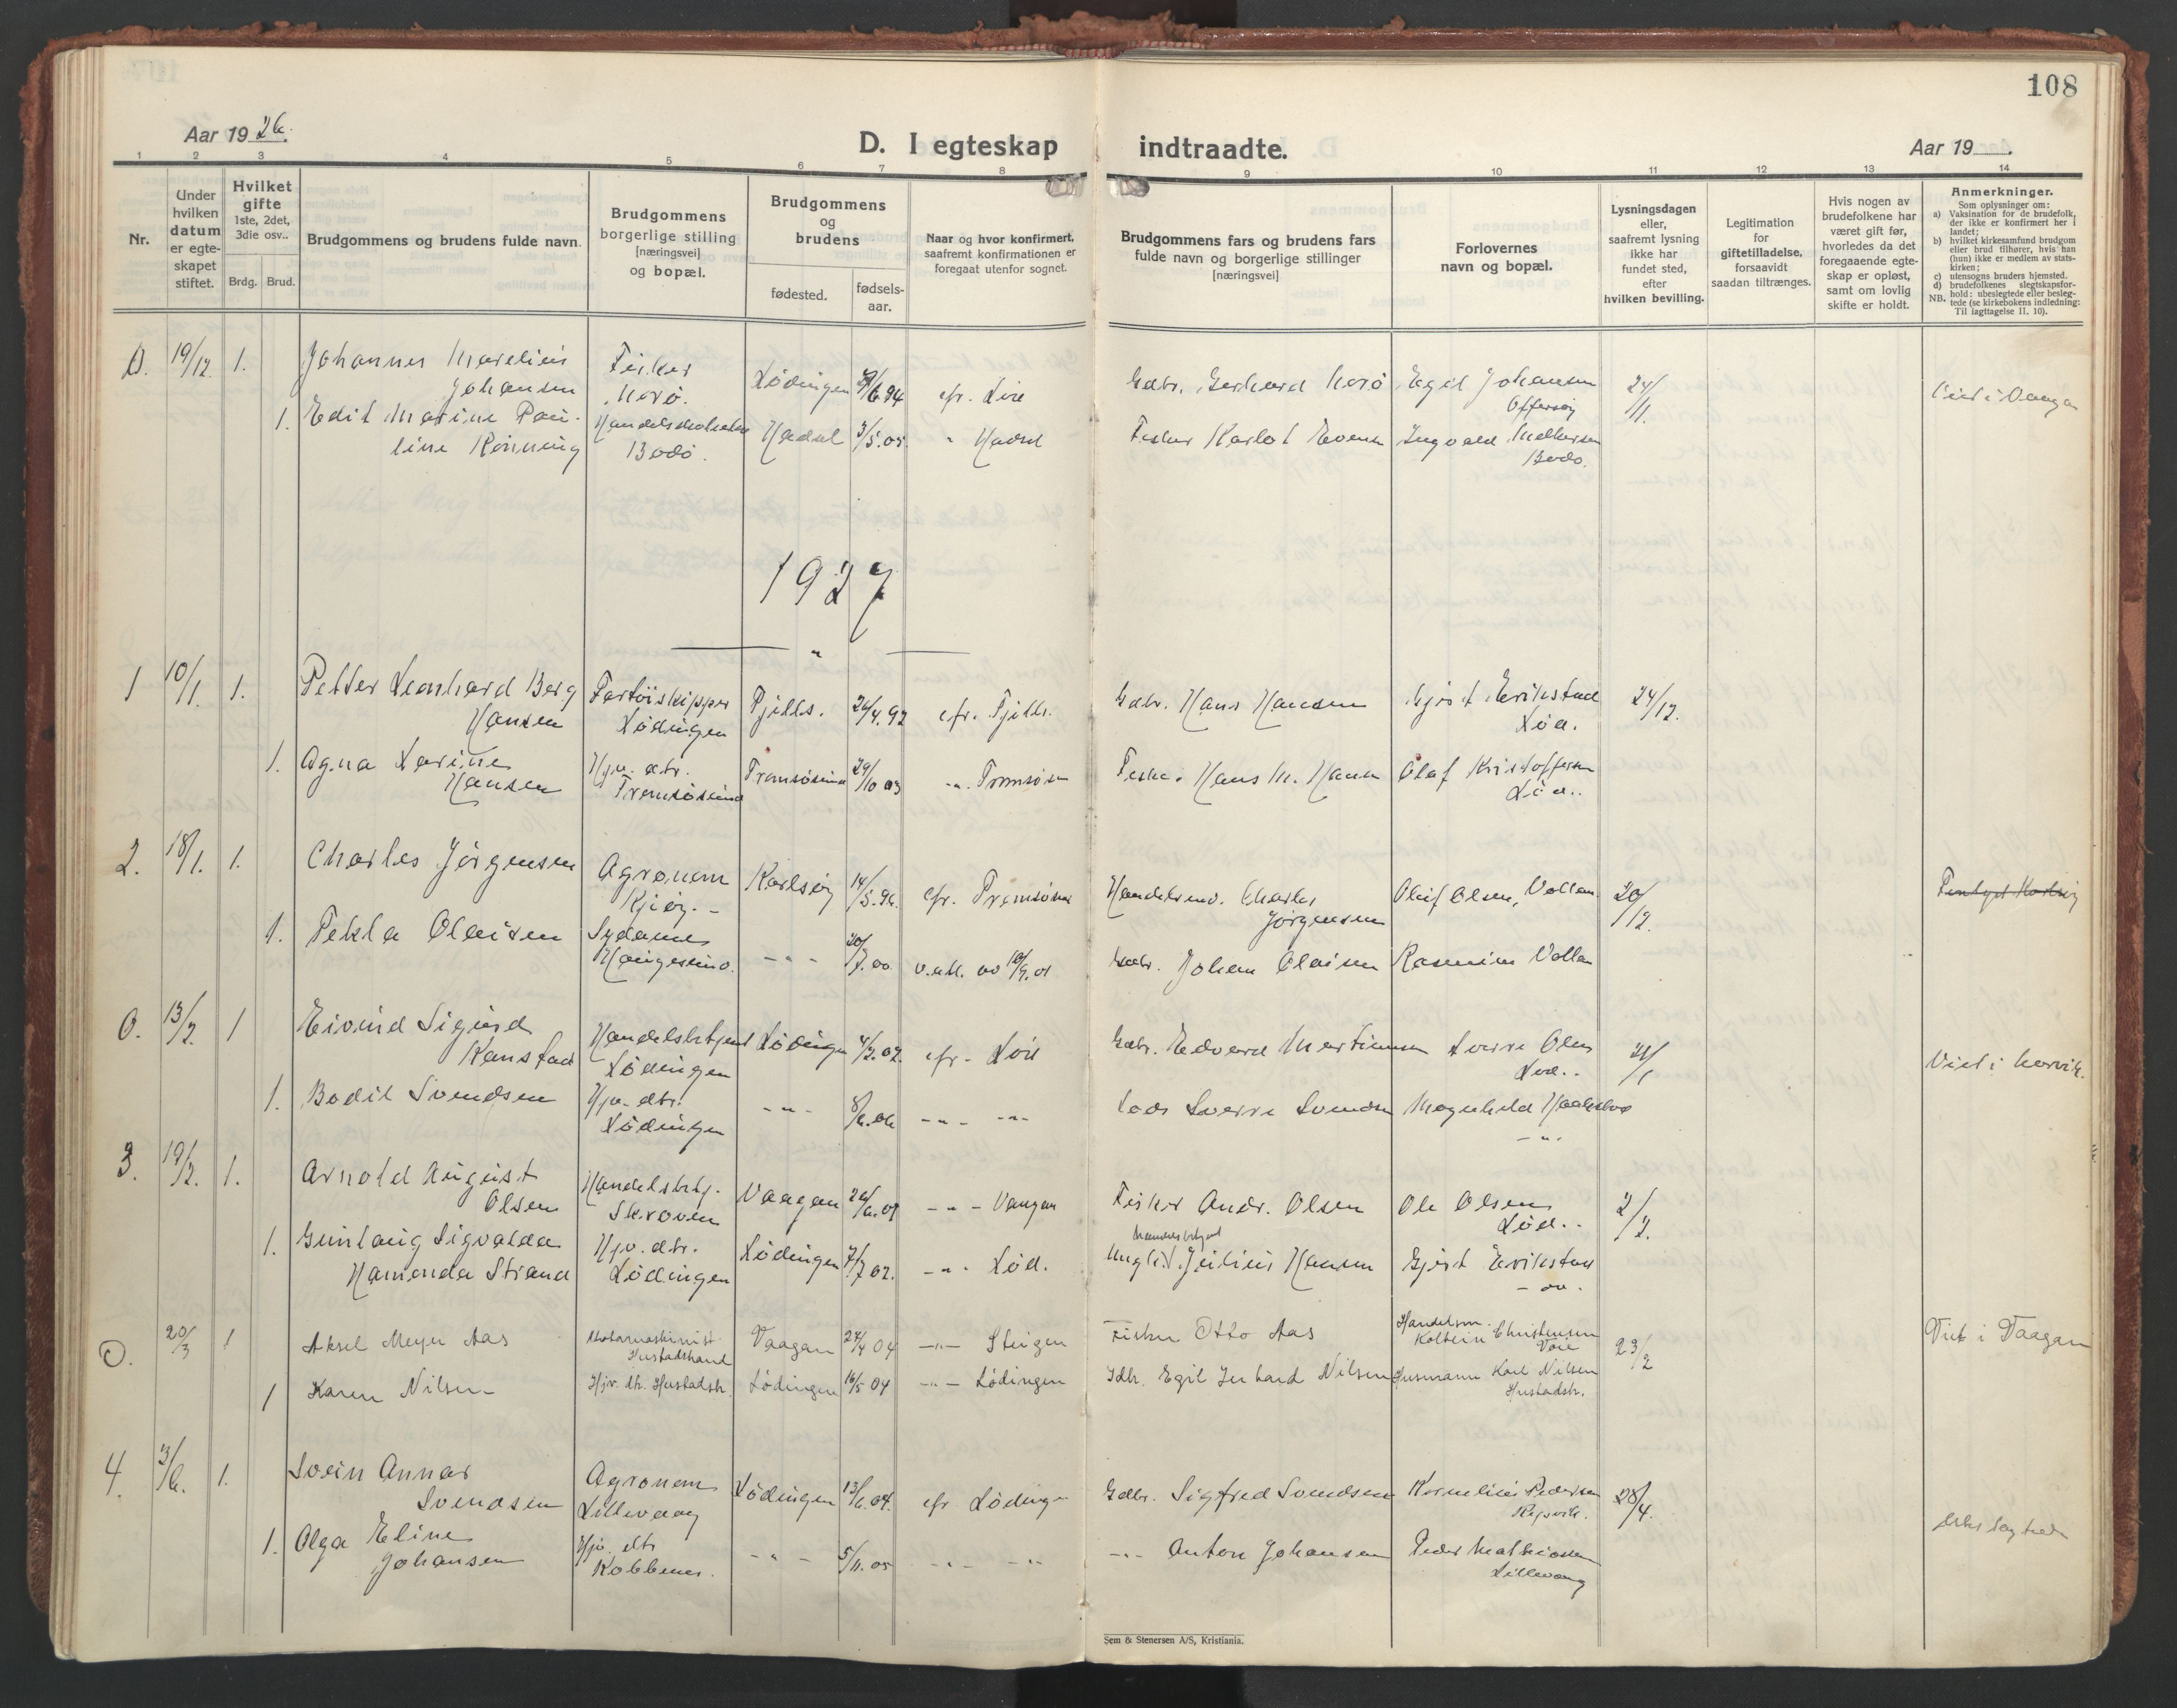 108
Aar 1926.
D. I egteskap indtraadte.
Aar 19
1 2 3 4 5 6 7 8 9 10 11 12 13 14
Nr.
Under hvilken datum er egte-skapet stiftet.
Hvilket gifte 1ste, 2det, 3die osv..
Brdg. Brud.
Brudgommens og brudens fulde navn.
Brudgommens borgerlige stilling [næringsvei] og bopæl.
Brudgommens og brudens
fødested.
fødsels-aar.
Naar og hvor konfirmert, saafremt konfirmationen er foregaat utenfor sognet.
Brudgommens fars og brudens fars fulde navn og borgerlige stillinger [næringsvei]
Forlovernes navn og bopæl.
Lysningsdagen eller, saafremt lysning ikke har fundet sted, efter hvilken bevilling.
Legitimation for giftetilladelse, forsaavidt saadan tiltrænges.
Hvis nogen av brudefolkene har været gift før, hvorledes da det foregaaende egte-skap er opløst, samt om lovlig skifte er holdt.
Anmerkninger.
Som oplysninger om:
a) Vaksination for de brudefolk, der ikke er konfirmert her i landet;
b) hvilket kirkesamfund brudgom eller brud tilhører, hvis han (hun) ikke er medlem av stats-kirken;
c) utensogns bruders hjemsted.
d) brudefolkenes slegtskapsfor-hold: ubeslegtede eller besleg-tede (se kirkebokens indledning: Til iagttagelse II. 10).
NB.
19/12. 1. Johannes Marelius Fisker Lödingen
Johansen
Gdbr. Gerhard Egil Johansen 24/11.
Offersøy
1. Edit Marine Pau- Hadsel 3/5.05. " Hadsel
line Rönning Bodö.
Fisker Ingvald
Bodö.
1927
1 10/1. 1. Petter Leonhard Berg Fartöiskipper Fjelds. 26/4.92 efr. Fjelds.
Hansen Lödingen
Gdbr. Hans Hansen Gjört Erikstad 24/12.
Löd.
1. Agna Larine Hjv. dtr. Tromsösund 29/10 03 -"- Tromsösun
Hansen Tromsösund
Hans M. Hansen Olaf Kristoffersen
Löd..
2. 18/1. 1. Charles Jörgensen Agronom Karlsöy 14/5.96. efr. Tromsösun
Kjöy.-
Handelsmd. Charles Olaf Olsen, Vollan 20/12.
Jörgensen
1. Tekla Olaisen Sydame -"- 20/7.00
Haugesund.
Gdbr. Johan Olaisen Rasmus Vollan
0. 13/2. 1 Eivind Sigurd Handelsbetjent Lödingen efr. Löd
Kanstad Lödingen
Gdbr. Edvard Martinussen Sverre Olsen
Löd..
Viet i Narvik.
1. Bodil Svendsen Hjv. dtr. -"- 8/6.06 -"- -"-
Lödingen
Lods Sverre Svendsen Magnhild
-"-
3. 19/2. 1. Arnold August Handelsbtj. Vaagan -"- Vaagan
Olsen Skroven
Fisker Andr. Olsen Ole Olsen 2/2.
Löd..
1. Gunlaug Sigvalda Hjv. dtr. Lödingen 7/7 02. -"- Löd.
Hamanda Strand Lödingen
Handelsbetjent
Julius Hansen Gjört Erikstad
O. 20/3 1 Aksel Meyer Aas Motormaskinist Vaagan 24/4 04 -"- Steigen
Hustadstrand
Fisker Otto Aas Handelsm.
Kolbein Christensen 23/2
Viet i Vaagan
1 Karen Nilsen Hjv. dtr. Hustadstr. Lödingen 16/5 04 -"- Lödingen
Gdbr. Egil Gerhard Nilsen Husmann Karl Nilsen
Hustadstr.
4. 3/6. 1. Svein Annar Agronom Lödingen 13/6.04. efr Lödingen
Svendsen Lillevaag
Gdbr. Sigfred Svendsen Kornelius Pedersen 28/4.
1. Olga Eline Hjv. dtr -"- 5/11.05 -"- -"-
Johansen Kobbenes.
-"- Anton Johansen Peder Mathiassen
Lillevaag
Sem & Stenersen A/S, Kristiania.